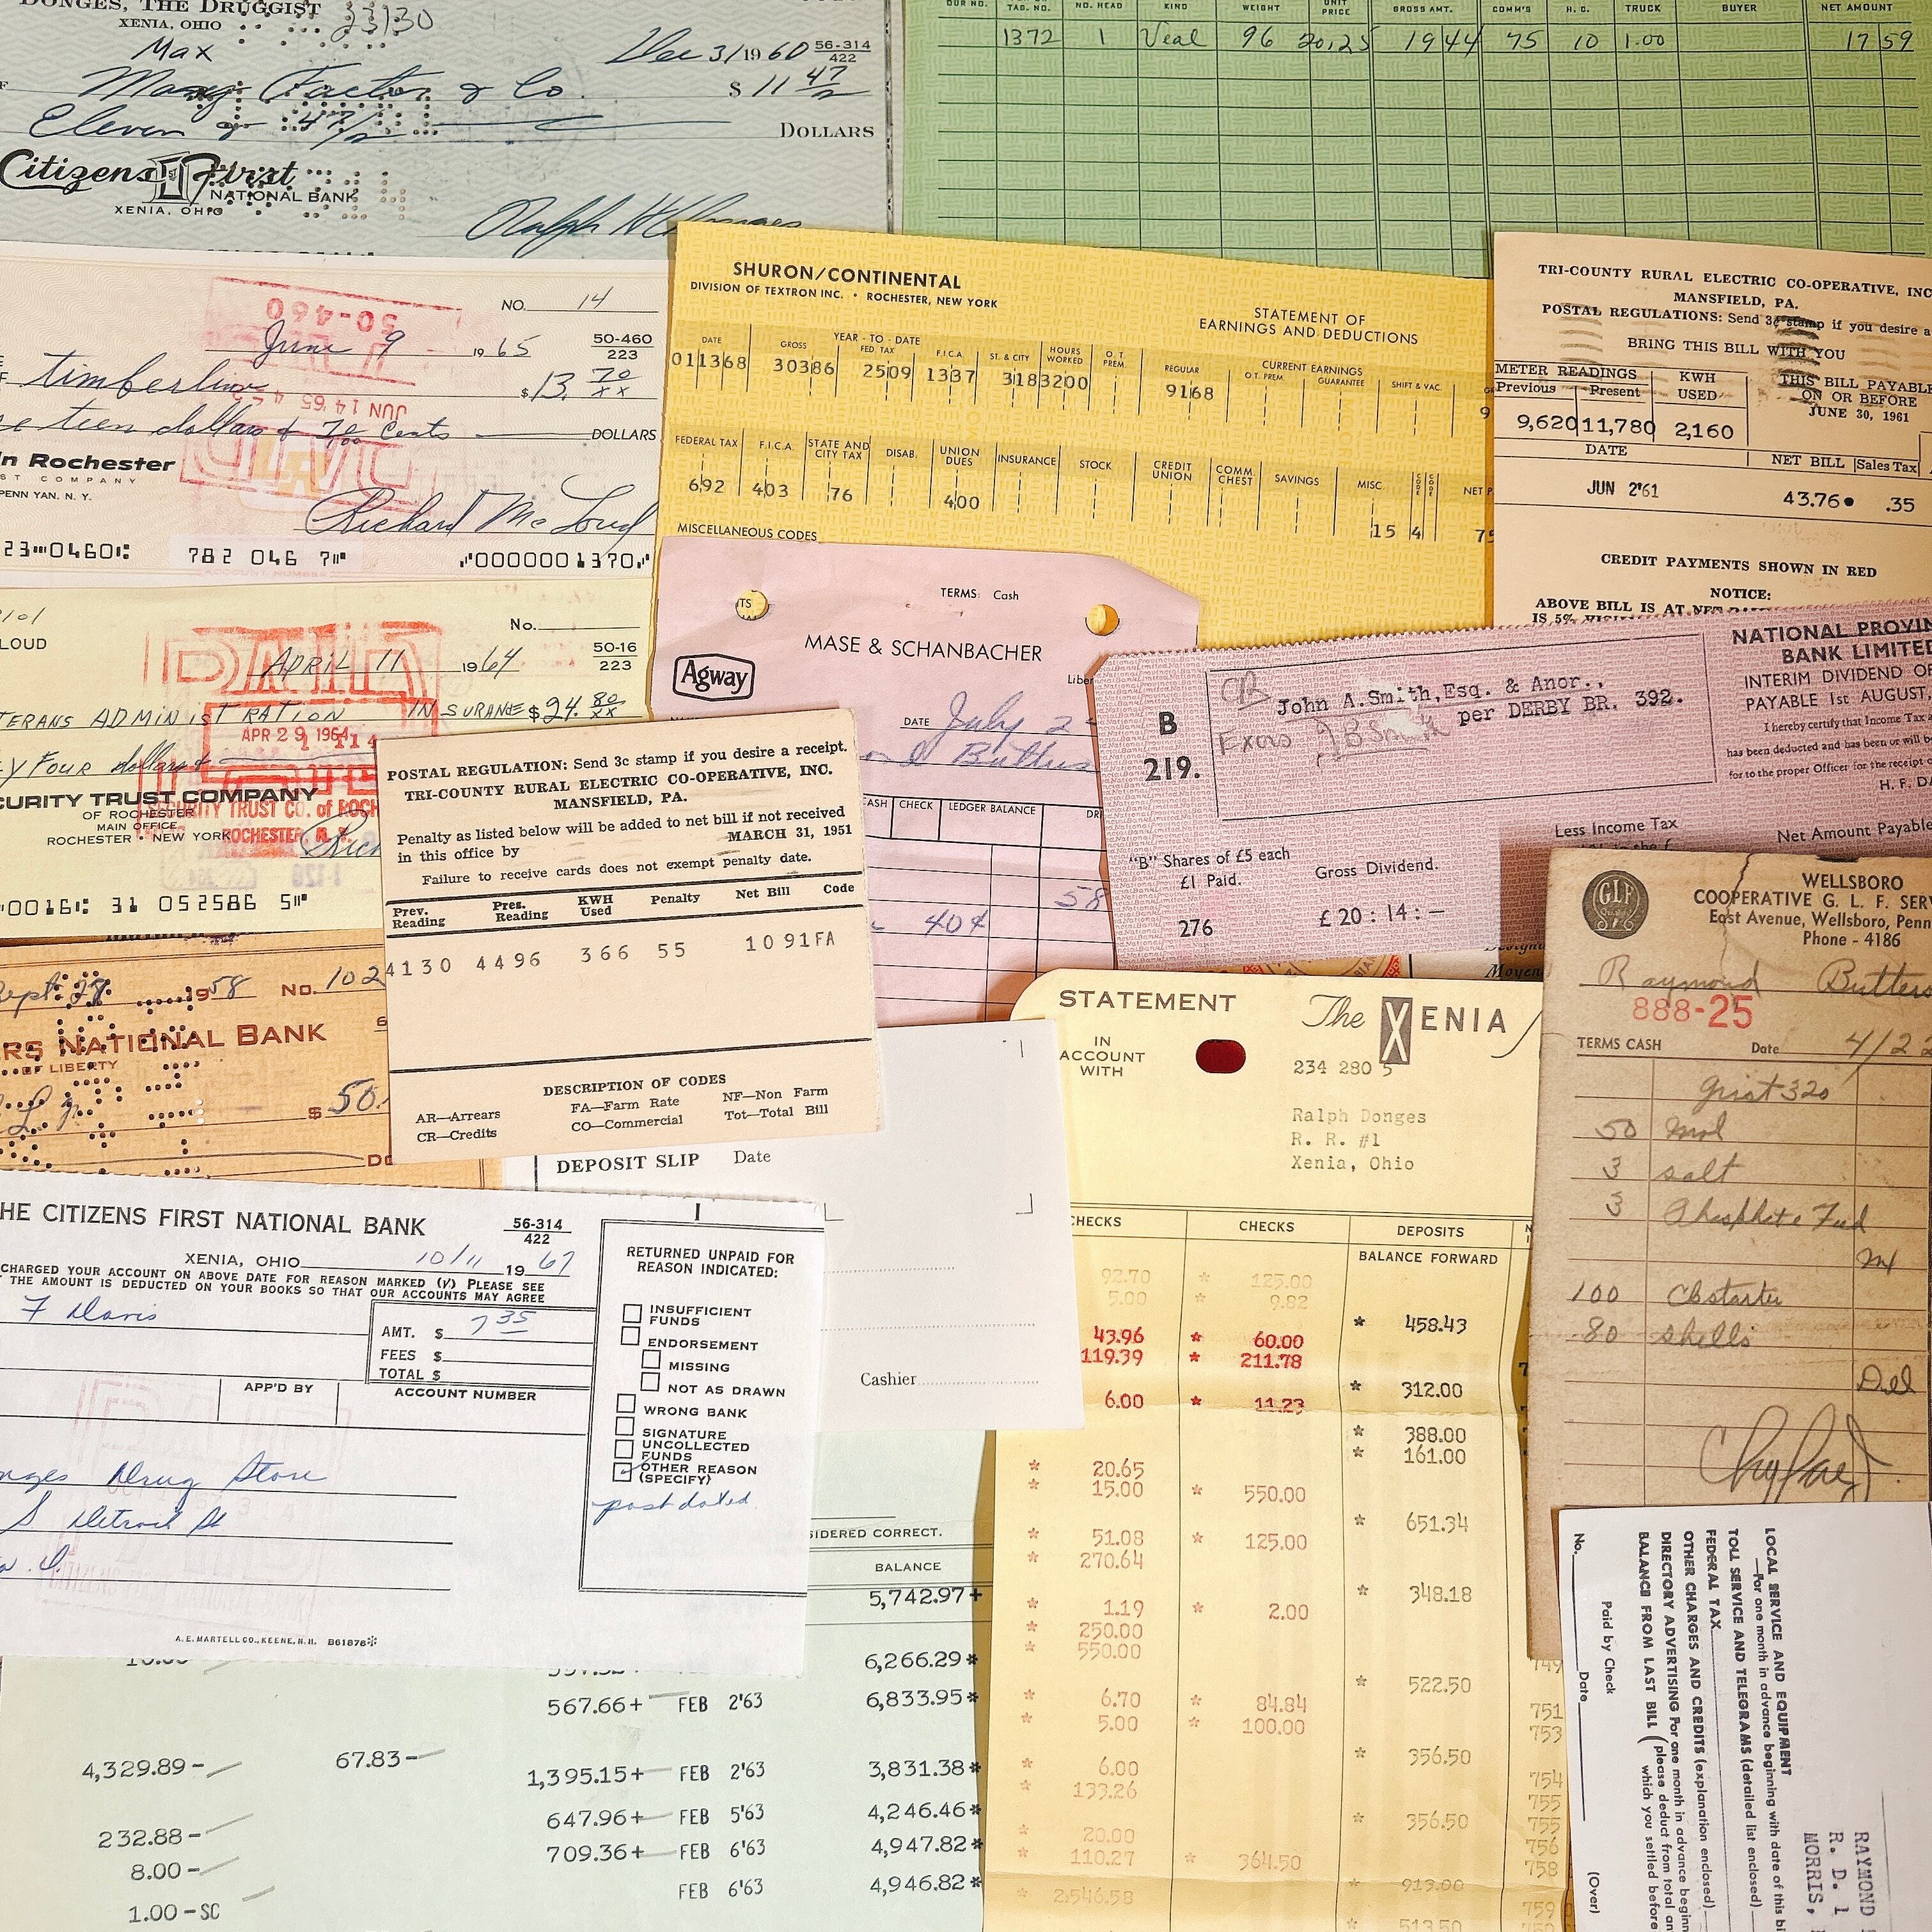 DONGES, THE DRUGGIST
XENIA, OHIO
23130
Max
Dec 31 1960
56-314
422
Factor & Co.
$ 11 47/
Eleven & 47/
DOLLARS
Citizens First
NATIONAL BANK
XENIA, OHIO
TAG. NO. NO. HEAD KIND WEIGHT UNIT PRICE GROSS AMT. COMM'S H. C. TRUCK BUYER NET AMOUNT
1372 1 Veal 96 20.25 19 44 75 10 1.00 17 59
NO. 14
50-460
June 9 1965
50-460
223
timberline
$13. 70/xx
teen dollars & 70 Cents DOLLARS
JUN 14 65
n Rochester
ST COMPANY
PENN YAN. N. Y.
Richard McLoud
23 0460 782 046 7 0000001370
SHURON/CONTINENTAL
DIVISION OF TEXTRON INC. • ROCHESTER, NEW YORK
STATEMENT OF
EARNINGS AND DEDUCTIONS
YEAR-TO-DATE
CURRENT EARNINGS
DATE GROSS FED. TAX F.I.C.A. ST. & CITY HOURS WORKED O.T. PREM. REGULAR O.T. PREM. GUARANTEE SHIFT & VAC.
011368 30386 2509 1337 318 3200 9168 9
FEDERAL TAX F.I.C.A. STATE AND CITY TAX DISAB. UNION DUES INSURANCE STOCK CREDIT UNION COMM. CHEST SAVINGS MISC. CODE CODE NET P
692 403 76 400 15 4 7
MISCELLANEOUS CODES
TRI-COUNTY RURAL ELECTRIC CO-OPERATIVE, INC
MANSFIELD, PA.
POSTAL REGULATIONS: Send 3¢ stamp if you desire a
BRING THIS BILL WITH YOU
METER READINGS KWH USED
Previous Present
THIS BILL PAYABLE
ON OR BEFORE
JUNE 30, 1961
9,620 11,780 2,160
DATE NET BILL Sales Tax
JUN 2'61 43.76 .35
CREDIT PAYMENTS SHOWN IN RED
NOTICE:
ABOVE BILL IS AT NET
IS 5%
LOUD
No.
50-16
223
APRIL 11 1964
TERANS ADMINISTRATION INSURANCE $24. 80/xx
APR 29 1964
Y FOUR dollars &
CURITY TRUST COMPANY
OF ROCHESTER
MAIN OFFICE
ROCHESTER • NEW YORK
SECURITY TRUST CO. of ROCH
ROCHESTER, N. Y.
0016 31 052586 5
TERMS: Cash
MASE & SCHANBACHER
Agway
Liber
DATE July 2
CASH CHECK LEDGER BALANCE
58
40¢
B
219.
CB
John A.Smith,Esq. & Anor.,
per DERBY BR. 392.
Exors JB Smith
NATIONAL PROVIN
BANK LIMITED
INTERIM DIVIDEND OF
PAYABLE 1st AUGUST,
I hereby certify that Income Tax
has been deducted and has been or will b
for to the proper Officer for the receipt o
H. F. DA
"B" Shares of £5 each
£1 Paid.
Gross Dividend.
Less Income Tax
Net Amount Payable
276 £ 20 : 14 : —
POSTAL REGULATION: Send 3c stamp if you desire a receipt.
TRI-COUNTY RURAL ELECTRIC CO-OPERATIVE, INC.
MANSFIELD, PA.
Penalty as listed below will be added to net bill if not received
in this office by MARCH 31, 1951
Failure to receive cards does not exempt penalty date.
Prev. Reading Pres. Reading KWH Used Penalty Net Bill Code
4130 4496 366 55 1091FA
DESCRIPTION OF CODES
AR—Arrears FA—Farm Rate NF—Non Farm
CR—Credits CO—Commercial Tot—Total Bill
Sept. 28 1958 No. 102
RS NATIONAL BANK
OF LIBERTY
$ 50.
DEPOSIT SLIP Date
Cashier
STATEMENT
IN
ACCOUNT
WITH
The XENIA
234 280 5
Ralph Donges
R. R. #1
Xenia, Ohio
CHECKS CHECKS DEPOSITS
BALANCE FORWARD
92.70 * 125.00
5.00 * 9.82
* 458.43
43.96 * 60.00
119.39 * 211.78
* 312.00
6.00 * 11.23
* 388.00
* 161.00
* 20.65
* 15.00 * 550.00
* 651.34
* 51.08 * 125.00
* 270.64
* 348.18
* 1.19 * 2.00
* 250.00
* 550.00
* 522.50
* 6.70 * 84.84 751
* 5.00 * 100.00 753
* 356.50
* 6.00 754
* 133.26 755
* 356.50 755
* 20.00 756
* 110.27 * 364.50 758
* 913.00
* 2,546.58 759
* 513.50
WELLSBORO
COOPERATIVE G. L. F. SERV
East Avenue, Wellsboro, Penn
Phone - 4186
GLF
Quality
Raymond Butters
888-25
TERMS CASH Date 4/22
Grist 320
50 Mol
3 salt
3 Phosphate Feed
Mx
100 Ch starter
80 shells
Del
HE CITIZENS FIRST NATIONAL BANK
56-314
422
XENIA, OHIO 10/11 1967
CHARGED YOUR ACCOUNT ON ABOVE DATE FOR REASON MARKED (√) PLEASE SEE
THE AMOUNT IS DEDUCTED ON YOUR BOOKS SO THAT OUR ACCOUNTS MAY AGREE
F Davis
AMT. $ 7 35
FEES $
TOTAL $
APP'D BY ACCOUNT NUMBER
nges Drug Store
S Detroit St
RETURNED UNPAID FOR
REASON INDICATED:
INSUFFICIENT
FUNDS
ENDORSEMENT
MISSING
NOT AS DRAWN
WRONG BANK
SIGNATURE
UNCOLLECTED
FUNDS
OTHER REASON
(SPECIFY)
post dated
A. E. MARTELL CO., KEENE, N.H. B61878
SIDERED CORRECT.
BALANCE
5,742.97+
6,266.29*
567.66+ FEB 2'63 6,833.95*
4,329.89- 67.83- 1,395.15+ FEB 2'63 3,831.38*
647.96+ FEB 5'63 4,246.46*
232.88- 709.36+ FEB 6'63 4,947.82*
8.00-
FEB 6'63 4,946.82*
1.00-SC
LOCAL SERVICE AND EQUIPMENT
—For one month in advance beginning with date of this bi
TOLL SERVICE AND TELEGRAMS (detailed list enclosed)
FEDERAL TAX
OTHER CHARGES AND CREDITS (explanation enclosed)
DIRECTORY ADVERTISING For one month in advance beginn
BALANCE FROM LAST BILL (please deduct from total an
which you settled before
Paid by Check
No. Date (Over)
RAYMOND
R. D. 1
MORRIS,